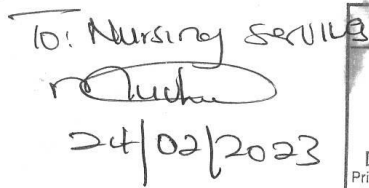 To: Nursing Services
24/02/2023
Pri